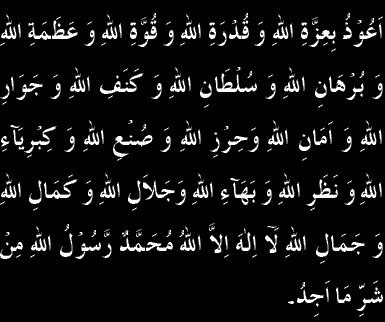 اَعُوْذُ بِعِزَّةِ اللهِ وَ قُدْرَةِ اللهِ وَ قُوَّةِ اللهِ وَ عَظَمَةِ اللهِ
وَ بُرْهَانِ اللهِ وَ سُلْطَانِ اللهِ وَ كَنَفِ اللهِ وَ جَوَارِ
اللهِ وَ اَمَانِ اللهِ وَحِرْزِ اللهِ وَ صُنْعِ اللهِ وَ كِبْرِيَآءِ
اللهِ وَ نَظَرِ اللهِ وَ بَهَآءِ اللهِ وَجَلَالِ اللهِ وَ كَمَالِ اللهِ
وَ جَمَالِ اللهِ لَآ اِلٰهَ اِلاَّ اللهُ مُحَمَّدٌ رَّسُوْلُ اللهِ مِنْ
شَرِّ مَا اَجِدُ۔